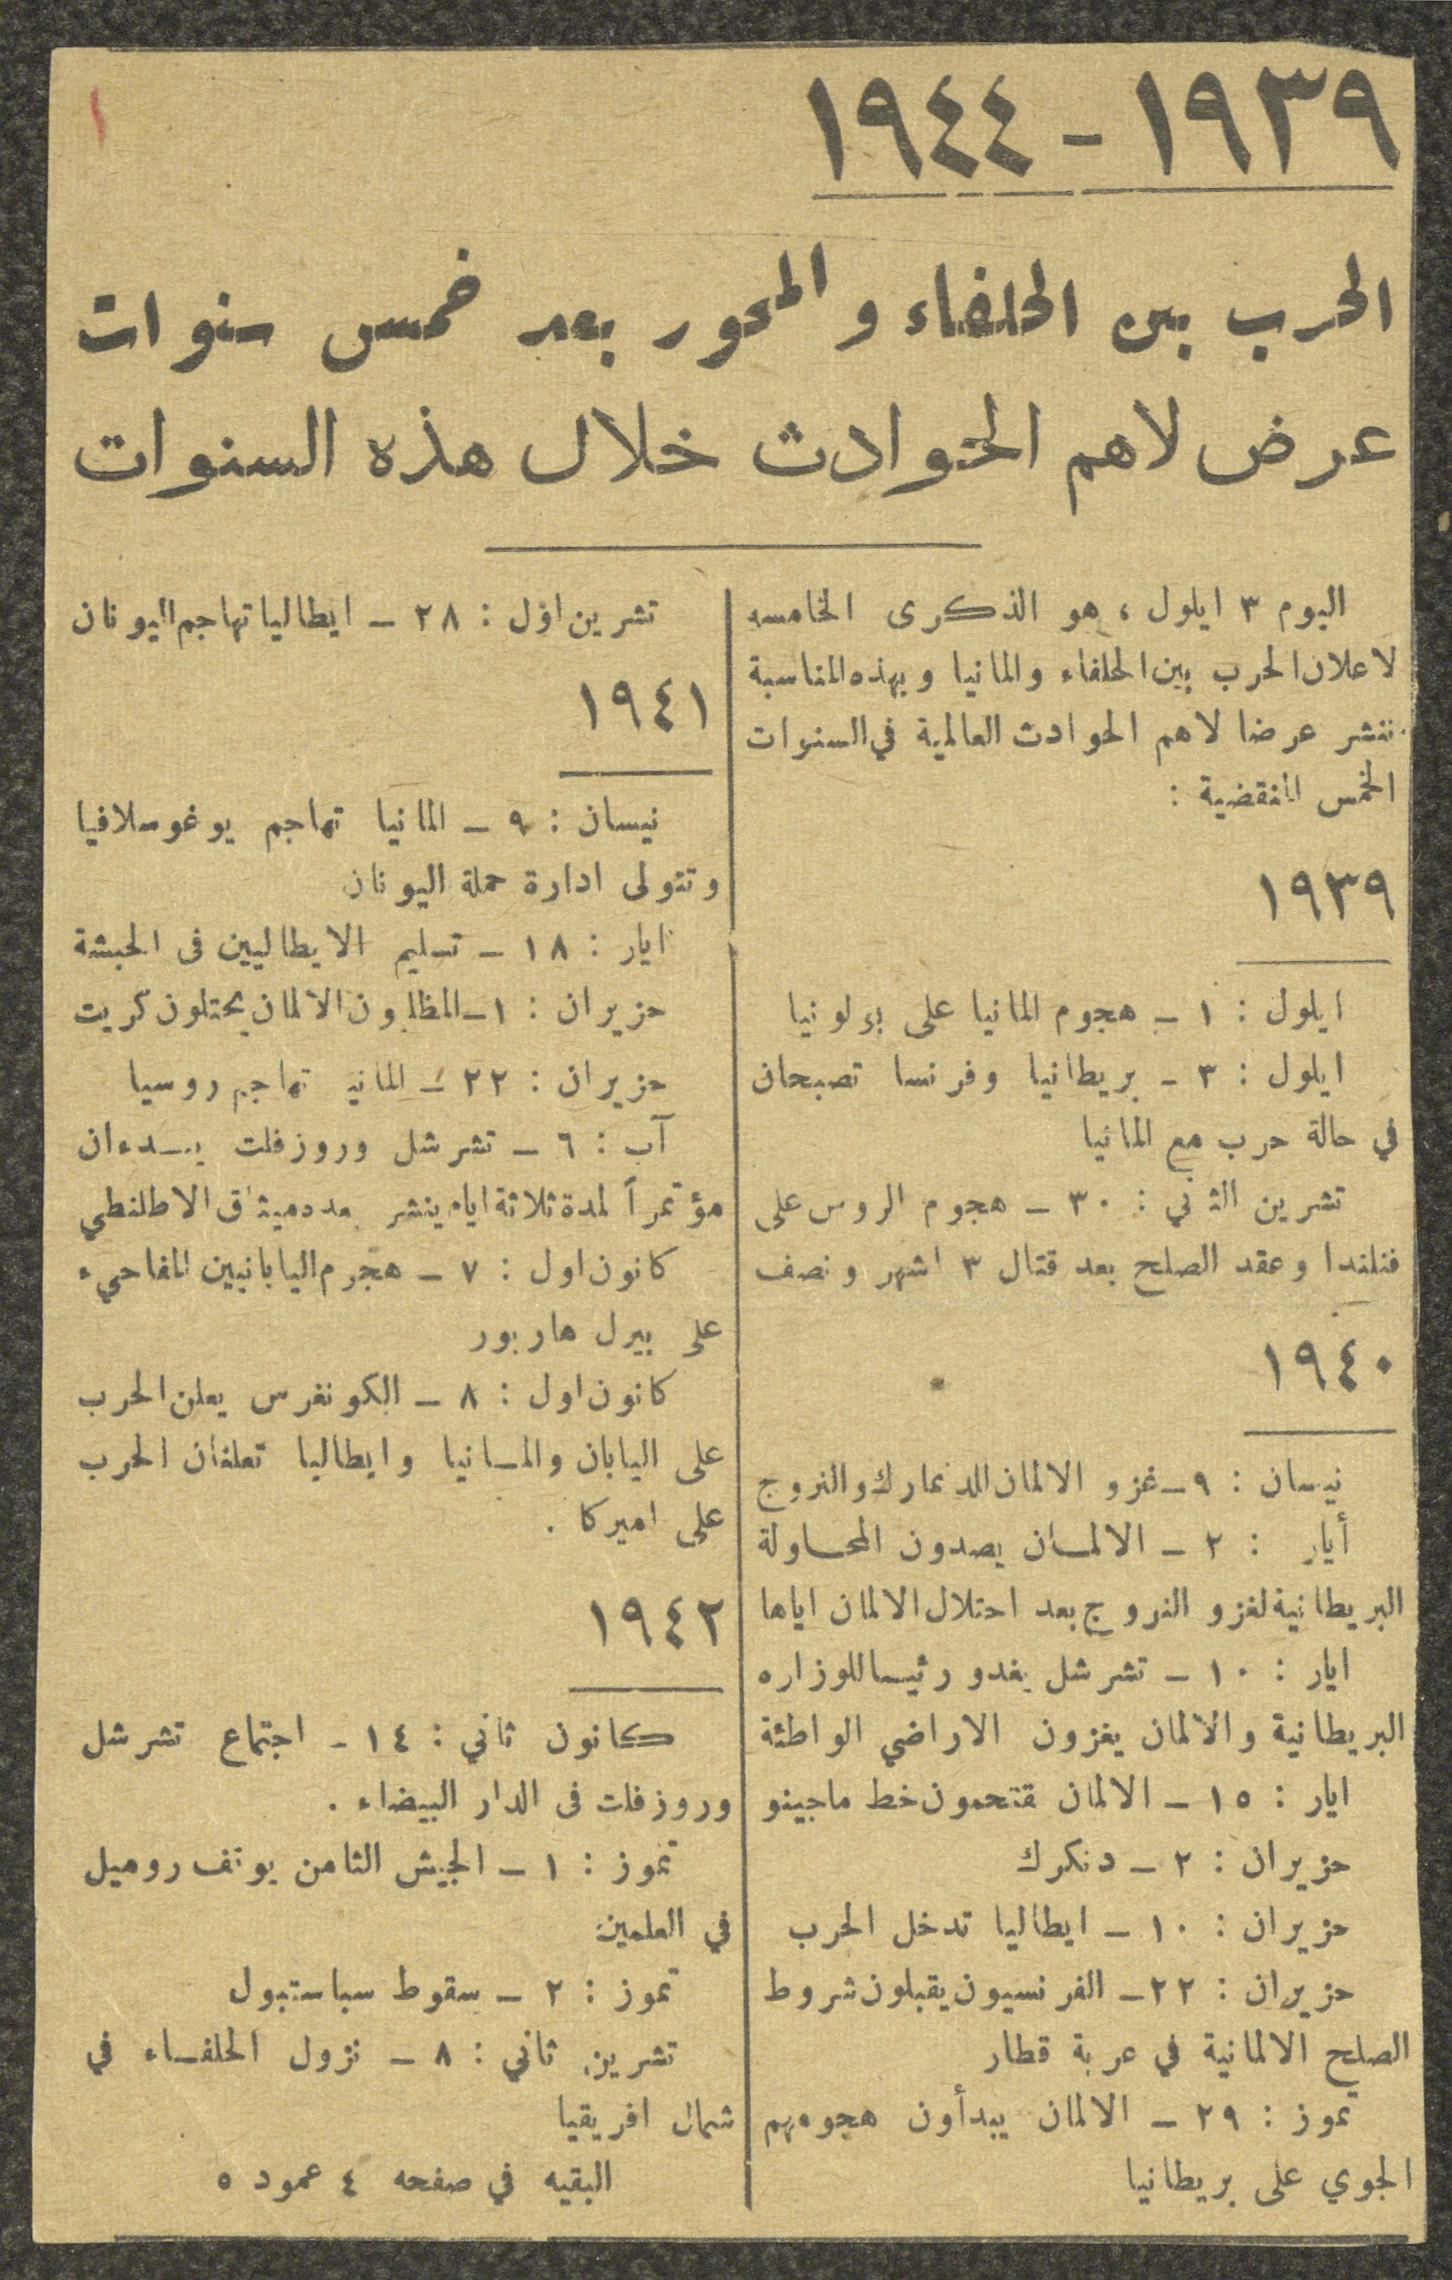 ١
١٩٣٩ - ١٩٤٤
الحرب بين الحلفاء والمحور بعد خمس سنوات
عرض لاهم الحوادث خلال هذه السنوات
اليوم ٣ ايلول ، هو الذكرى الخامسه
لاعلان الحرب بين الحلفاء والمانيا وبهذه المناسبة
ننشر عرضا لاهم الحوادث العالمية في السنوات
الخمس المنقضية :
١٩٣٩
ايلول : ١ - هجوم المانيا على بولونيا
ايلول : ٣ - بريطانيا وفرنسا تصبحان
في حالة حرب مع المانيا
تشرين الثاني : ٣٠ - هجوم الروس على
فنلندا وعقد الصلح بعد قتال ٣ اشهر ونصف
١٩٤٠
نيسان : ٩ - غزو الالمان للدنمارك والنروج
أيار : ٢ - الالمان يصدون المحاولة
البريطانية لغزو النروج بعد احتلال الالمان اياها
ايار : ١٠ - تشرشل يغدو رئيسا للوزاره
البريطانية والالمان يغزون الاراضي الواطئة
ايار : ١٥ - الالمان يقتحمون خط ماجينو
حزيران : ٢ - دنكرك
حزيران : ١٠ - ايطاليا تدخل الحرب
حزيران : ٢٢ - الفرنسيون يقبلون شروط
الصلح الالمانية في عربة قطار
تموز : ٢٩ - الالمان يبدأون هجومهم
الجوي على بريطانيا
تشرين اول : ٢٨ - ايطاليا تهاجم اليونان
١٩٤١
نيسان : ٩ - المانيا تهاجم يوغوسلافيا
وتتولى ادارة حملة اليونان
ايار : ١٨ - تسليم الايطاليين في الحبشة
حزيران : ١ - المظليون الالمان يحتلون كريت
حزيران : ٢٢ - المانيا تهاجم روسيا
آب : ٦ - تشرشل وروزفلت يبدءان
مؤتمراً لمدة ثلاثة ايام ينشر بعده ميثاق الاطلنطي
كانون اول : ٧ - هجوم اليابانيين المفاجيء
على بيرل هاربور
كانون اول : ٨ - الكونغرس يعلن الحرب
على اليابان والمانيا وايطاليا تعلنان الحرب
على اميركا .
١٩٤٢
كانون ثاني : ١٤ - اجتماع تشرشل
وروزفلت في الدار البيضاء .
تموز : ١ - الجيش الثامن يوقف روميل
في العلمين
تموز : ٢ - سقوط سباستبول
تشرين ثاني : ٨ - نزول الحلفاء في
شمال افريقيا
البقيه في صفحه ٤ عمود ٥